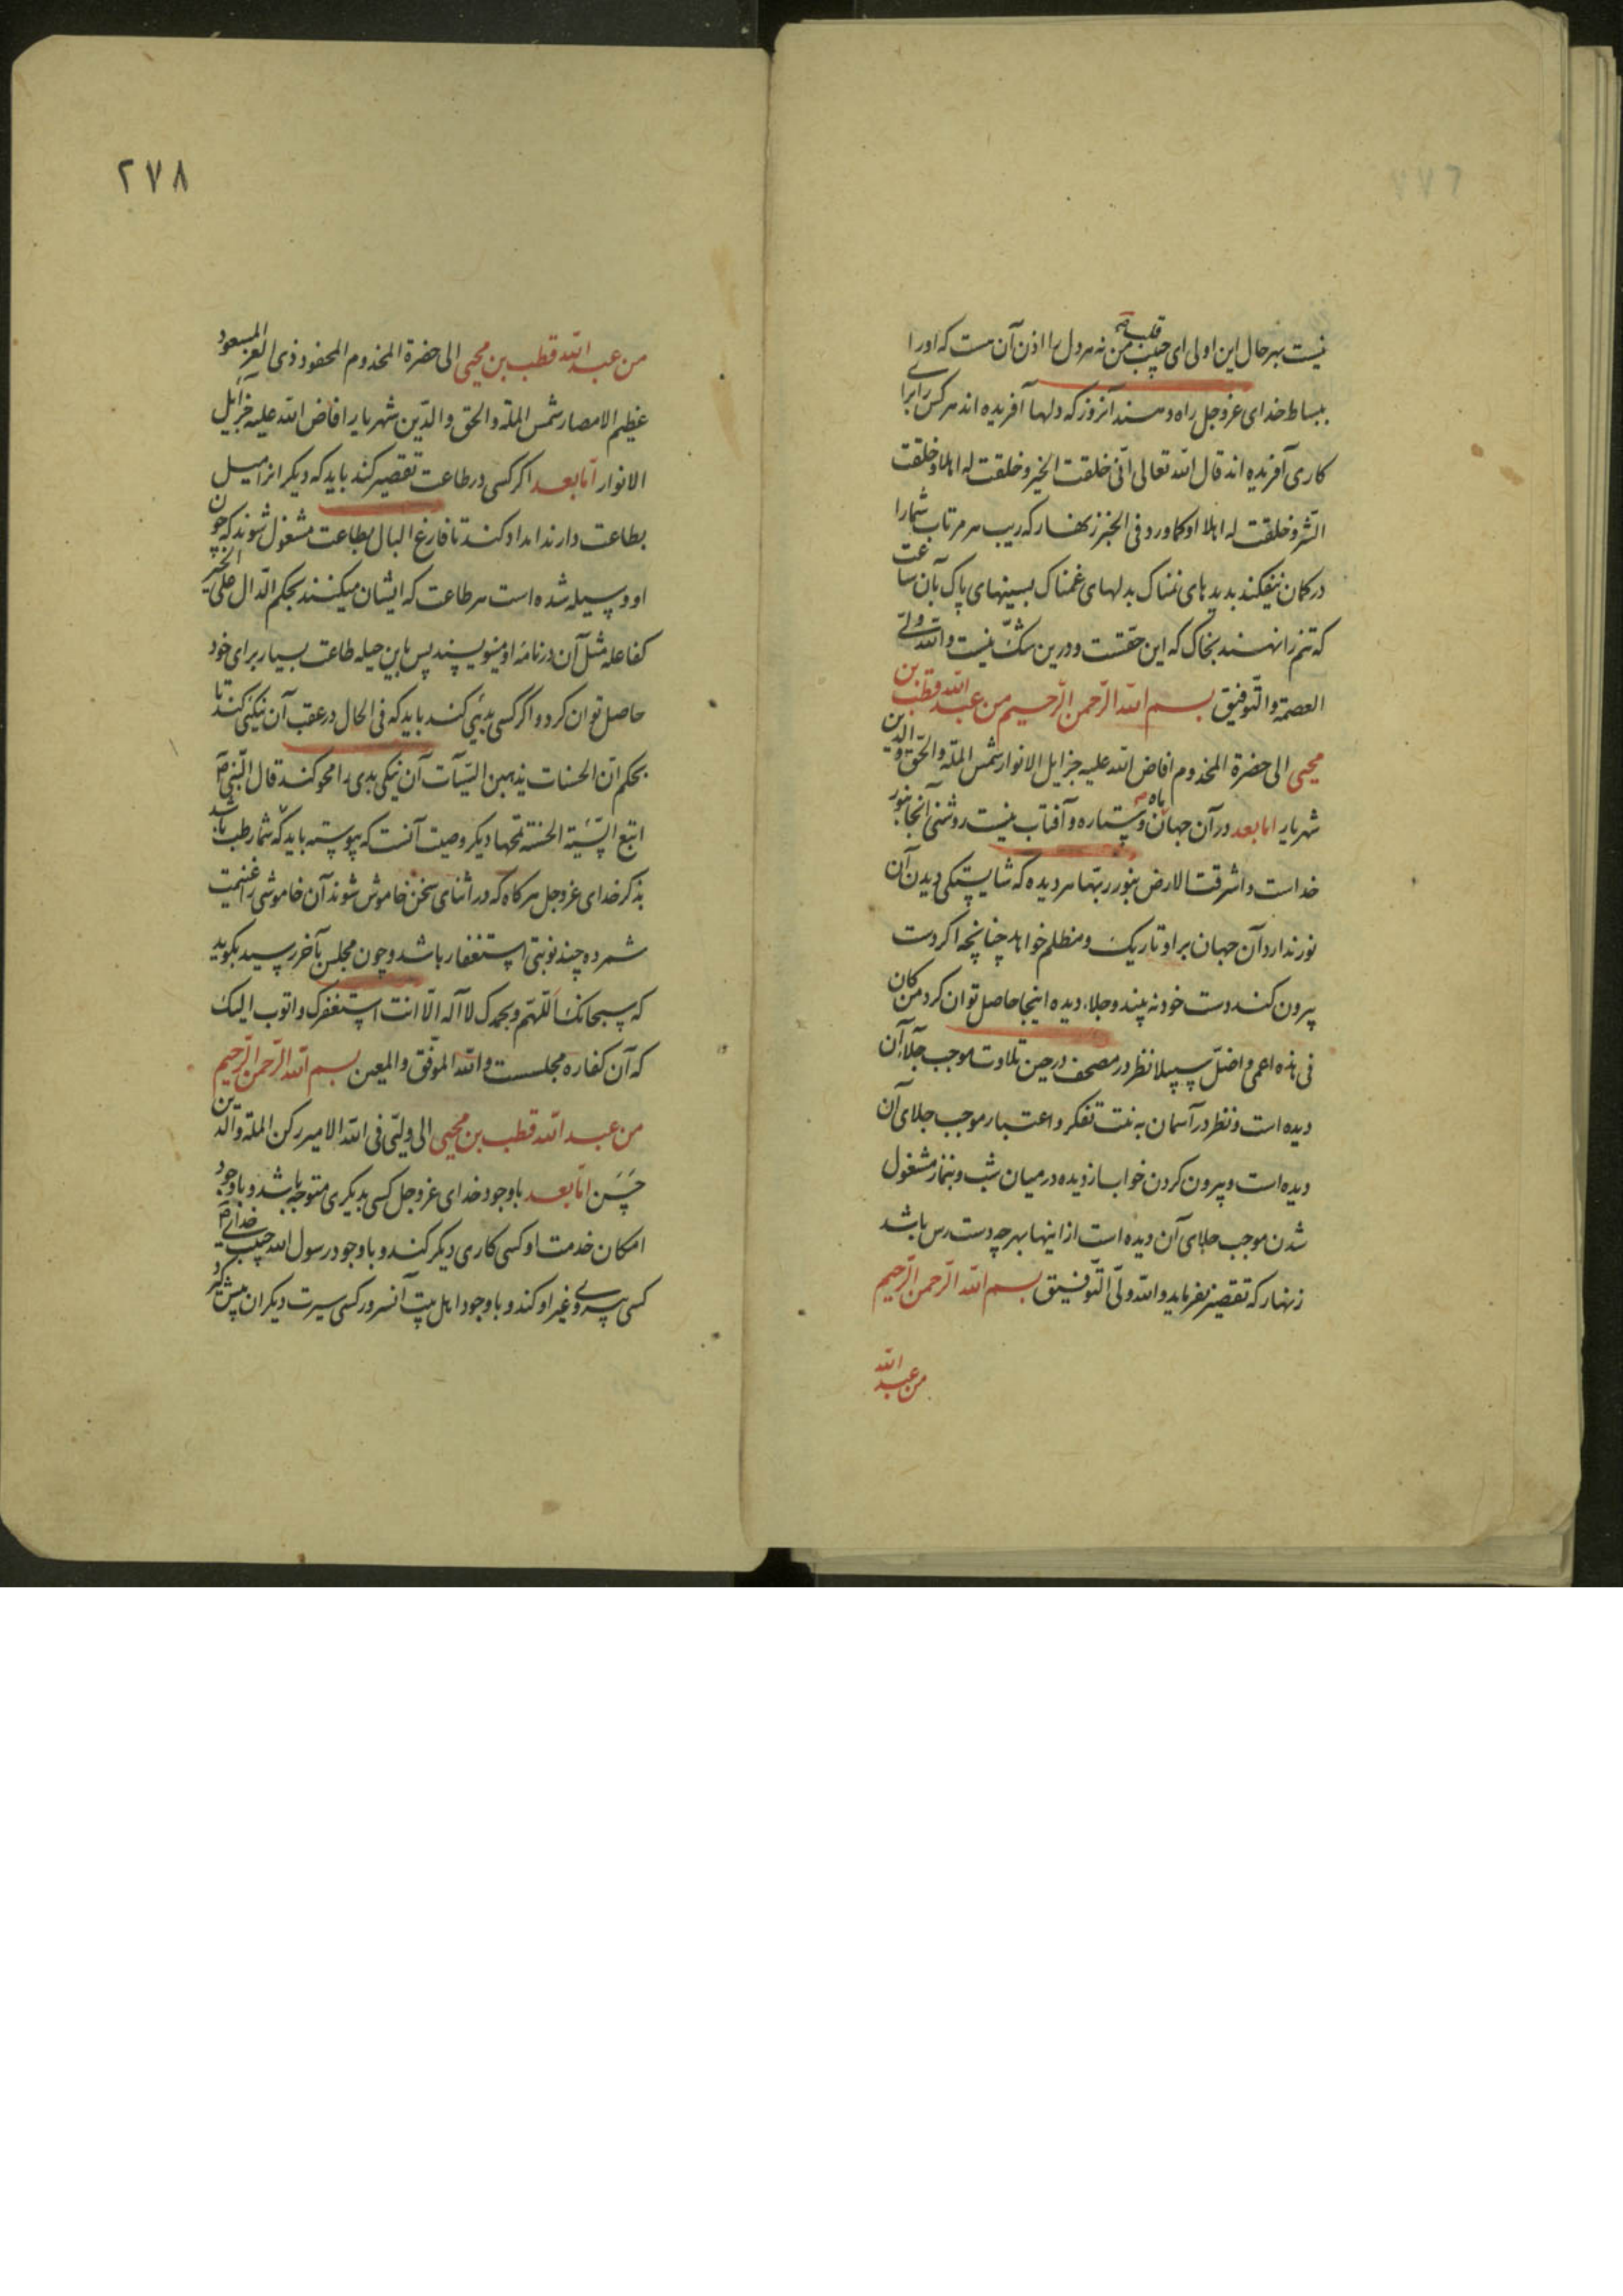 نیست بهر حال این اولی ای حبیب قلب من نه هر دل را اذن آن هست که او را
ببساط خدای عزوجل راه دهند آنروز که دلها آفریده اند هر کس را برای
کاری آفریده اند قال الله تعالی انی خلقت الخیر و خلقت له اهلا و خلقت
الشر و خلقت له اهلا او کما ورد فی الخبر زنهار که ریب هر مرتاب شما را
در کمان نیفکند بدیدهای نمناک بدلهای غمناک بسینهای پاک بآن ساعت
که تنم را نهند بخاک که این حقست و درین شک نیست والله ولی
العصمة والتوفیق بسم الله الرحمن الرحیم من عبد الله قطب بن
محیی الی حضرة المخدوم افاض الله علیه جزایل الانوار شمس الملة والحق والدین
شهریار اما بعد در آن جهان ماه و ستاره و آفتاب نیست روشنی آنجا بنور
خداست و اشرقت الارض بنور ربها هر دیده که شایستکی دیدن آن
نور ندارد آن جهان بر او تاریک و مظلم خواهد چنانچه اکر دست
بیرون کند دست خود نه بیند و جلاء دیده اینجا حاصل توان کرد من کان
فی هذه اعمی و اضل سبیلا نظر در مصحف در حین تلاوت موجب جلاء آن
دیده است و نظر در آسمان به نیت تفکر و اعتبار موجب جلای آن
دیده است و بیرون کردن خواب از دیده در میان شب و بنماز مشغول
شدن موجب جلای آن دیده است از اینها بهر چه دست رس باشد
زنهار که تقصیر نفرماید والله ولی التوفیق بسم الله الرحمن الرحیم
من عبد الله
۲۷۸
من عبد الله قطب بن محیی الی حضرة المخدوم المحفود ذی العز المسعود
عظیم الامصار شمس الملة والحق والدین شهریار افاض الله علیه جزایل
الانوار اما بعد اکر کسی در طاعت تقصیر کند باید که دیکر انرا میل
بطاعت دارند امداد کند تا فارغ البال بطاعت مشغول شوند که چون
او وسیله شده است هر طاعت که ایشان میکنند بحکم الدال علی الخیر
کفاعله مثل آن در نامه او مینویسند پس باین حیله طاعت بسیار برای خود
حاصل توان کرد و اکر کسی بدیی کند باید که فی الحال در عقب آن نیکیی کند تا
بحکم ان الحسنات یذهبن السیآت آن نیکی بدی را محو کند قال النبی ص
اتبع السیئة الحسنة تمحها دیکر وصیت آنست که پیوسته باید که شما رطب باشد
بذکر خدای عزوجل هر کاه که در اثنای سخن خاموش شوند آن خاموشی را غنیمت
شمرده چند نوبتی استغفار باشد و چون مجلس بآخر رسید بکوید
که سبحانک اللهم و بحمدک لا آله الا انت استغفرک و اتوب الیک
که آن کفاره مجلست والله الموفق والمعین بسم الله الرحمن الرحیم
من عبد الله قطب بن محیی الی ولیی فی الله الامیر رکن الملة والدین
حسن اما بعد با وجود خدای عزوجل کسی بدیکری متوجه باشد و با وجود
امکان خدمت او کسی کاری دیکر کند و با وجود رسول الله حبیب خدای ص
کسی پیروی غیر او کند و با وجود اهل بیت آنسرور کسی سیرت دیکران پیش کیرد